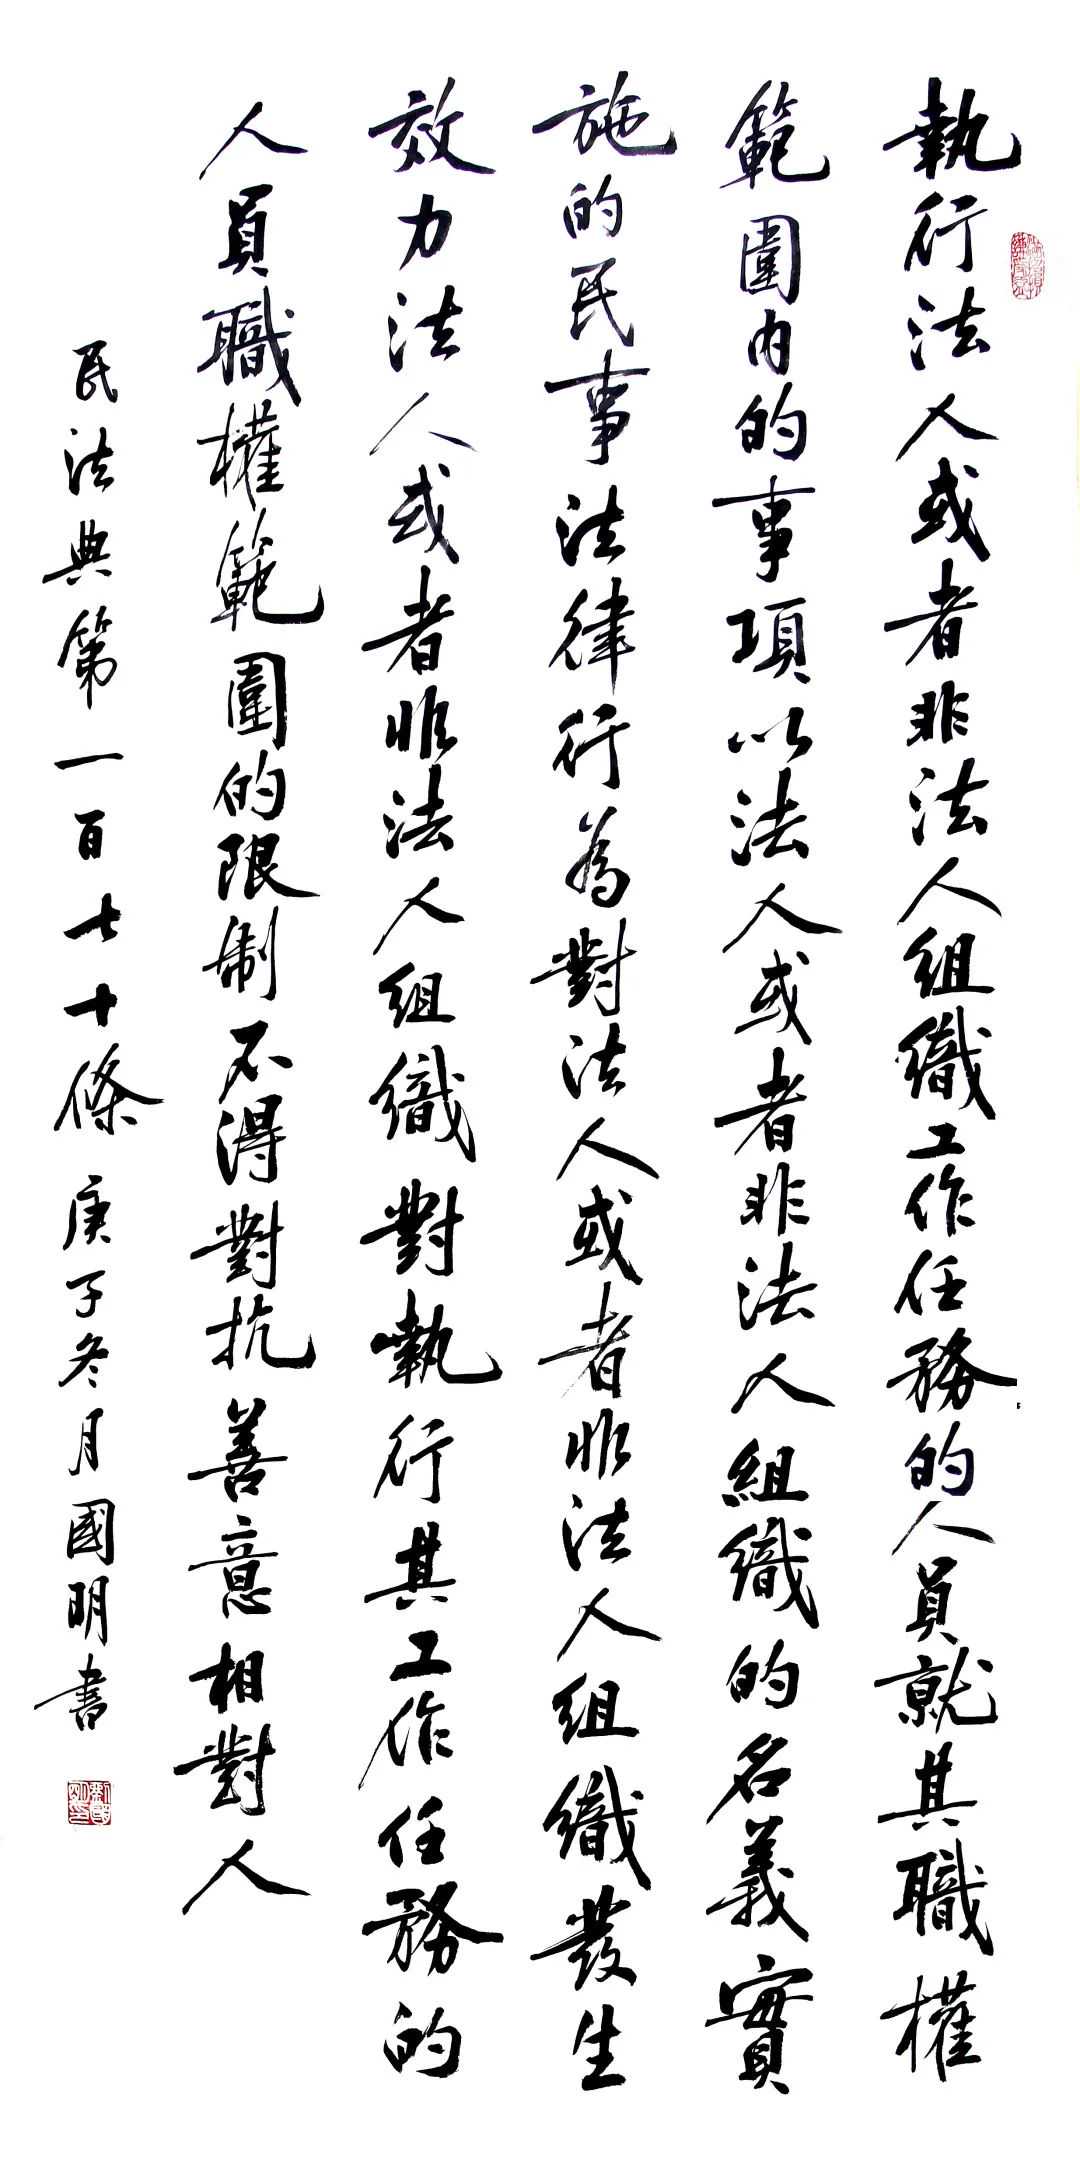 執行法人或者非法人組織工作任務的人員就其職權
範圍内的事項以法人或者非法人組織的名義實
施的民事法律行為對法人或者非法人組織發生
效力法人或者非法人組織對執行其工作任務的
人員職權範圍的限制不得對抗善意相對人
民法典第一百七十條 庚子冬月國明書